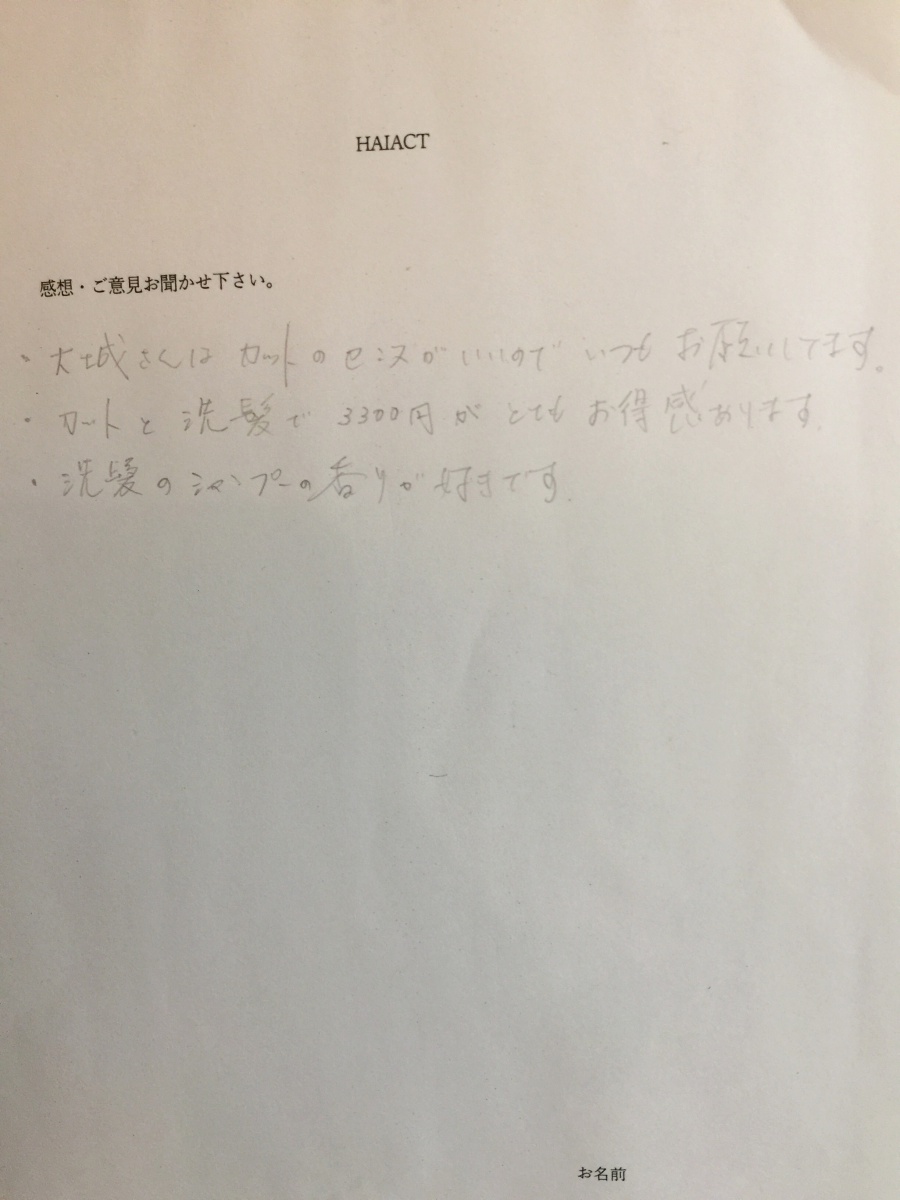 HAIACT
感想・ご意見お聞かせ下さい。
・大城さんはカットのセンスがいいのでいつもお願いしてます。
・カットと洗髪で3300円がとてもお得感あります.
・洗髪のシャンプーの香りが好きです.
お名前